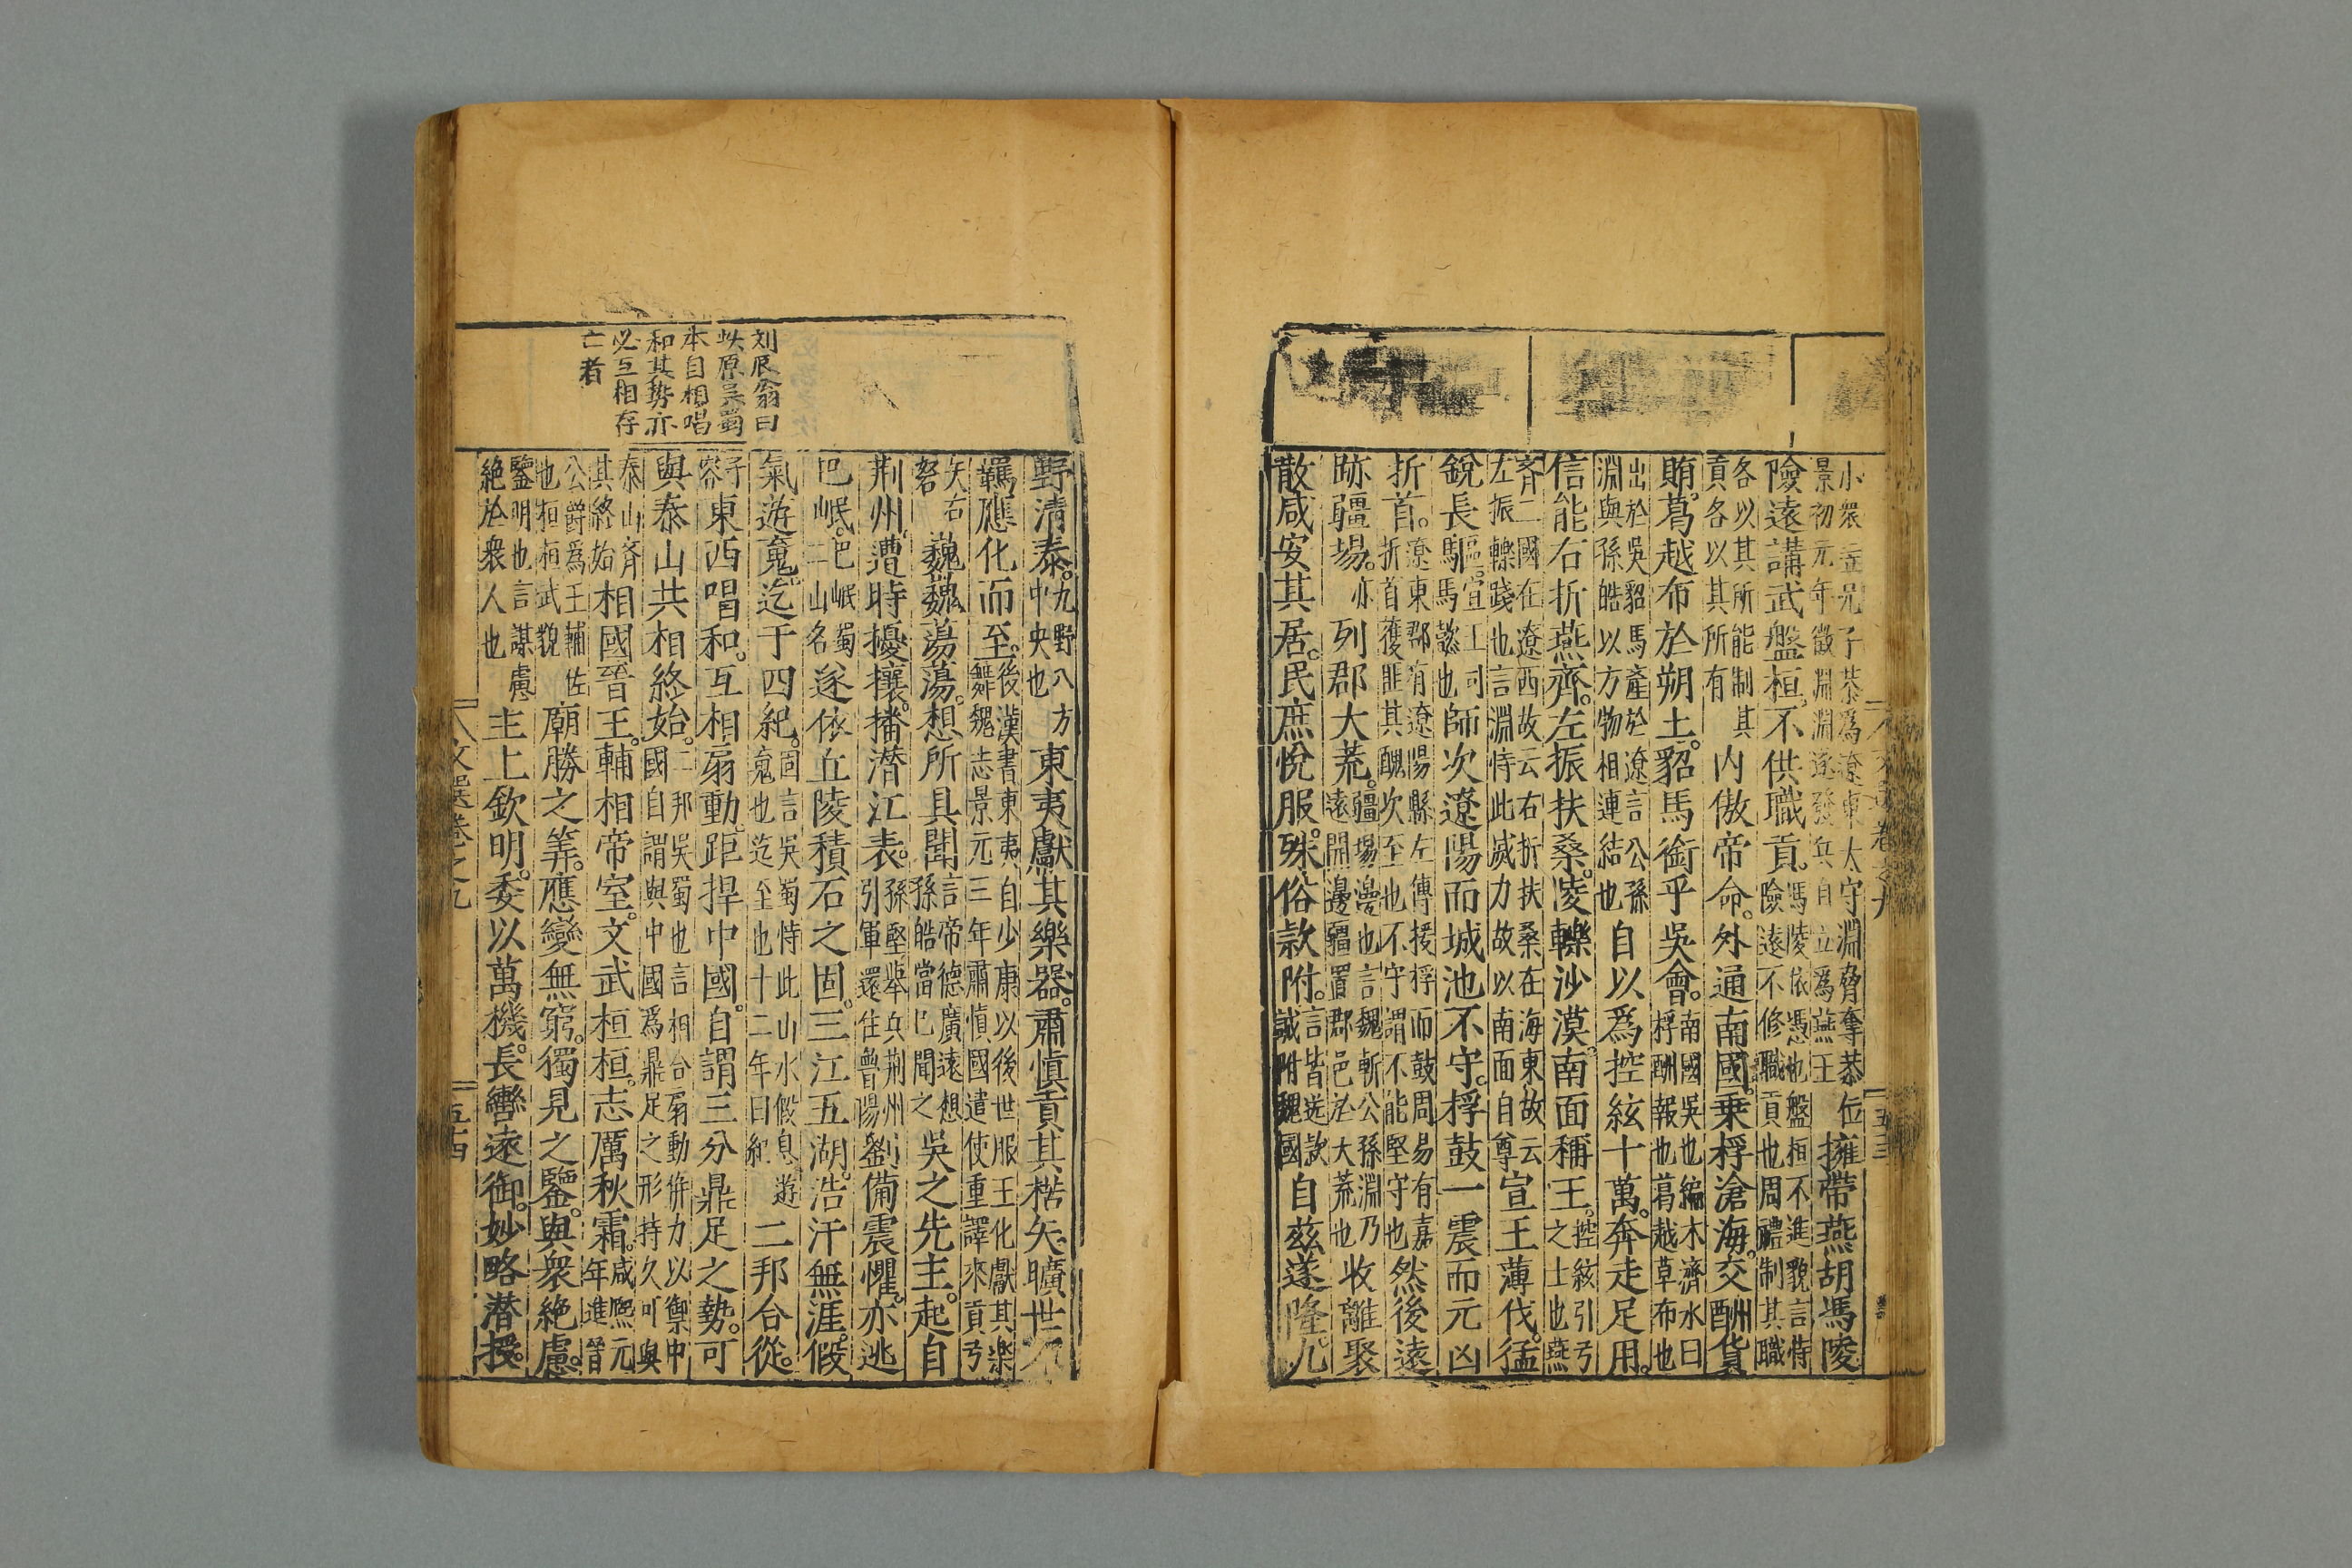 小衆立兄子恭爲遼東太守淵脅奪恭位景初元年徵淵淵遂發兵自立爲燕王擁帶燕胡馮陵
險遠講武盤桓不供職貢。馮陵依憑也盤桓不進貌言恃險遠不修職貢也周禮制其職
各以其所能制其貢各以其所有內傲帝命。外通南國。乗桴滄海。交酬貨
賄。葛越布於朔土。貂馬衘乎吳會。南國吳也編木濟水曰桴酬報也葛越草布也
出於吳貂馬產於遼言公孫淵與孫皓以方物相連結也自以爲控絃十萬。奔走足用。
信能右折燕齊。左振扶桑。凌轢沙漠。南面稱王。控絃引弓之士也燕
齊二國在遼西故云右折扶桑在海東故云左振轢踐也言淵恃此威力故以南面自尊宣王薄伐。猛
銳長驅。宣王司馬懿也師次遼陽而城池不守。桴鼓一震而元凶
折首。遼東郡有遼陽縣左傳援桴而鼓周易有嘉折首獲匪其醜次至也不守謂不能堅守也然後遠
跡疆場。亦列郡大荒。疆場邊也言魏斬公孫淵乃遠開邊疆置郡邑於大荒也收離聚
散咸安其居。民庶悅服。殊俗款附。言皆送款誠附魏國自兹遂隆九
野清泰。九野八方中央也東夷獻其樂器。肅慎貢其楛矢。曠世不
羈應化而至。後漢書東夷自少康以後世服王化獻其樂舞魏志景元三年肅慎國遣使重譯來貢弓
矢石砮巍巍蕩蕩。想所具聞言帝德廣遠想孫皓當已聞之吳之先主。起自
荆州遭時擾攘。播潛江表。孫堅舉兵荆州引軍還住魯陽劉備震懼亦逃
巴岷。巴岷蜀二山名遂依丘陵積石之固。三江五湖。浩汗無涯假
氣遊䰟迄于四紀。固言吳蜀恃此山水假息遊䰟也迄至也十二年曰紀二邦合從。
東西唱和。互相扇動。距捍中國。自謂三分鼎足之勢。可
與泰山共相終始。二邦吳蜀也言相合扇動併力以禦中國自謂與中國爲鼎足之形持久可與
泰山齊其終始相國晉王。輔相帝室。文武桓桓。志厲秋霜。咸熙元年進晉
公爵爲王輔佐也桓桓武貌廟勝之筭。應變無窮。獨見之鑒。與衆絶慮。
鑒明也言謀慮絶於衆人也主上欽明。委以萬機。長轡遠御。妙略潛授。
刘辰翁曰
此原吳蜀
本自相唱
和其勢亦
必互相存
亡者
文選卷之九
五四